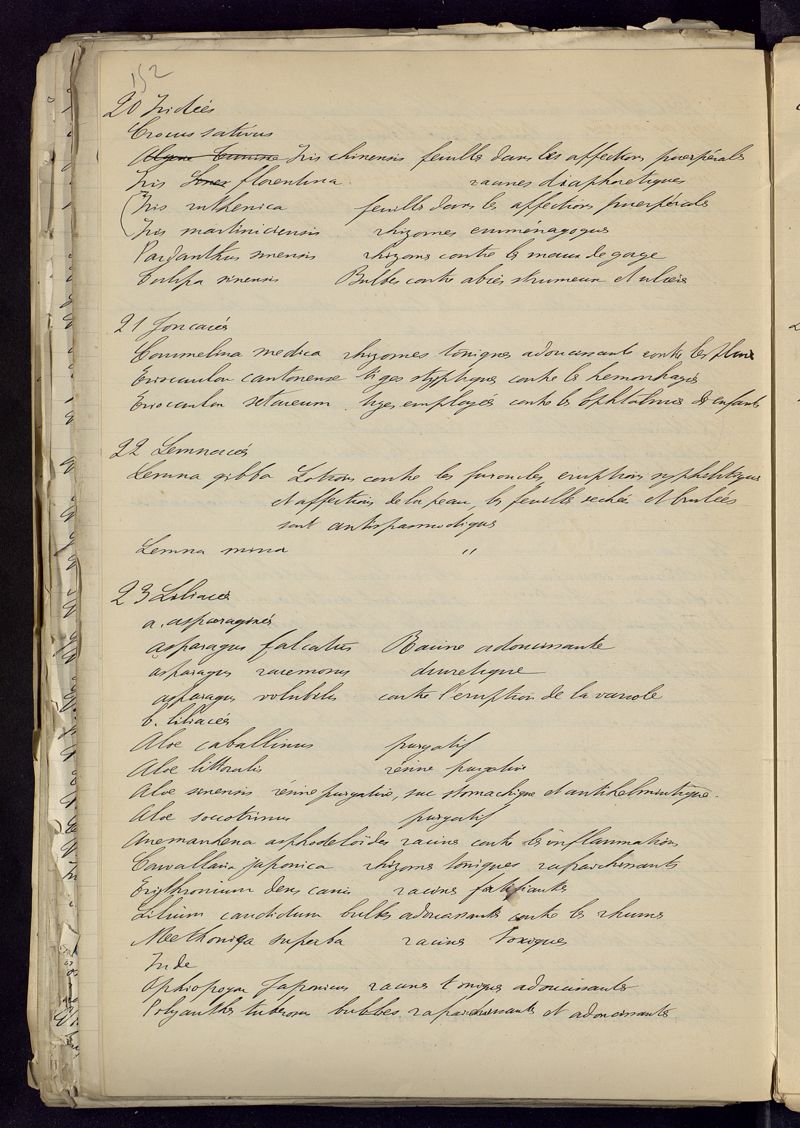 152
20 Iridées
Crocus sativus
Iris chinensis feuilles dans les affections puerpérales
Iris florentina racines diaphoretiques
Iris ruthenica feuilles dans les affections puerpérales
Iris martiniciensis rhizomes emménagogues
Pardanthus sinensis rhizomes contre les maux de gorge
Tulipa sinensis Bulbes contre abcès strumeux et ulcères
21 Joncacés
Commelina medica rhizomes toniques adoucissants contre les
Eriocaulon cantonense tiges styptiques contre les hemorrhagies
Eriocaulon setaceum tiges employées contre les Ophtalmies des enfants
22 Lemnacés
Lemna gibba Lotions contre les furoncles, eruptions syphilitiques
et affections de la peau, les feuilles sechées et brulées
sont antispasmodiques
Lemna minor "
23 Liliacées
a. asparaginés
asparagus falcatus Racine adoucissante
asparagus racemosus diuretique
asparagus volubilis contre l'éruption de la variole
b. liliacées
Aloe caballinus purgatif
Aloe littoralis résine purgative
Aloe sinensis résine purgative, suc stomachique et antihelmintique.
Aloe soccotrinus purgatif
Anemarrhena asphodeloïdes racines contre les inflammations
Convallaria japonica rhizomes toniques rafraichissants
Erythronium dens canis racines fortifiantes
Lilium candidum bulbes adoucissants contre les rhumes
Meethonica superba racines toxiques
Inde
Ophiopogon Japonicus racines toniques adoucissants
Polyanthes tuberosa bulbes rafraichissants et adoucissants